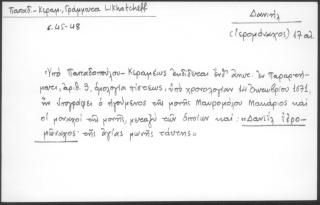 Παπαδ.-Κεραμ., Γράμματα Likhatcheff
Δανιήλ
σ. 45-48
(ἱερομόναχος) 17 αἰ.
«Ὑπὸ Παπαδοπούλου-Κεραμέως ἐκδίδεται ἐνθ' ἀνωτ. ἐν Παραρτή-
ματι, ἀριθ. 9, ὁμολογία πίστεως, ὑπὸ χρονολογίαν 14 Ὀκτωβρίου 1671,
ἣν ὑπογράφει ὁ ἡγούμενος τῆς μονῆς Μαυρομόλου Μακάριος καὶ
οἱ μοναχοὶ τῆς μονῆς, μεταξὺ τῶν ὁποίων καὶ: «Δανιὴλ ἱερο-
μώναχος τῆς ἁγίας μωνῆς ταύτης»